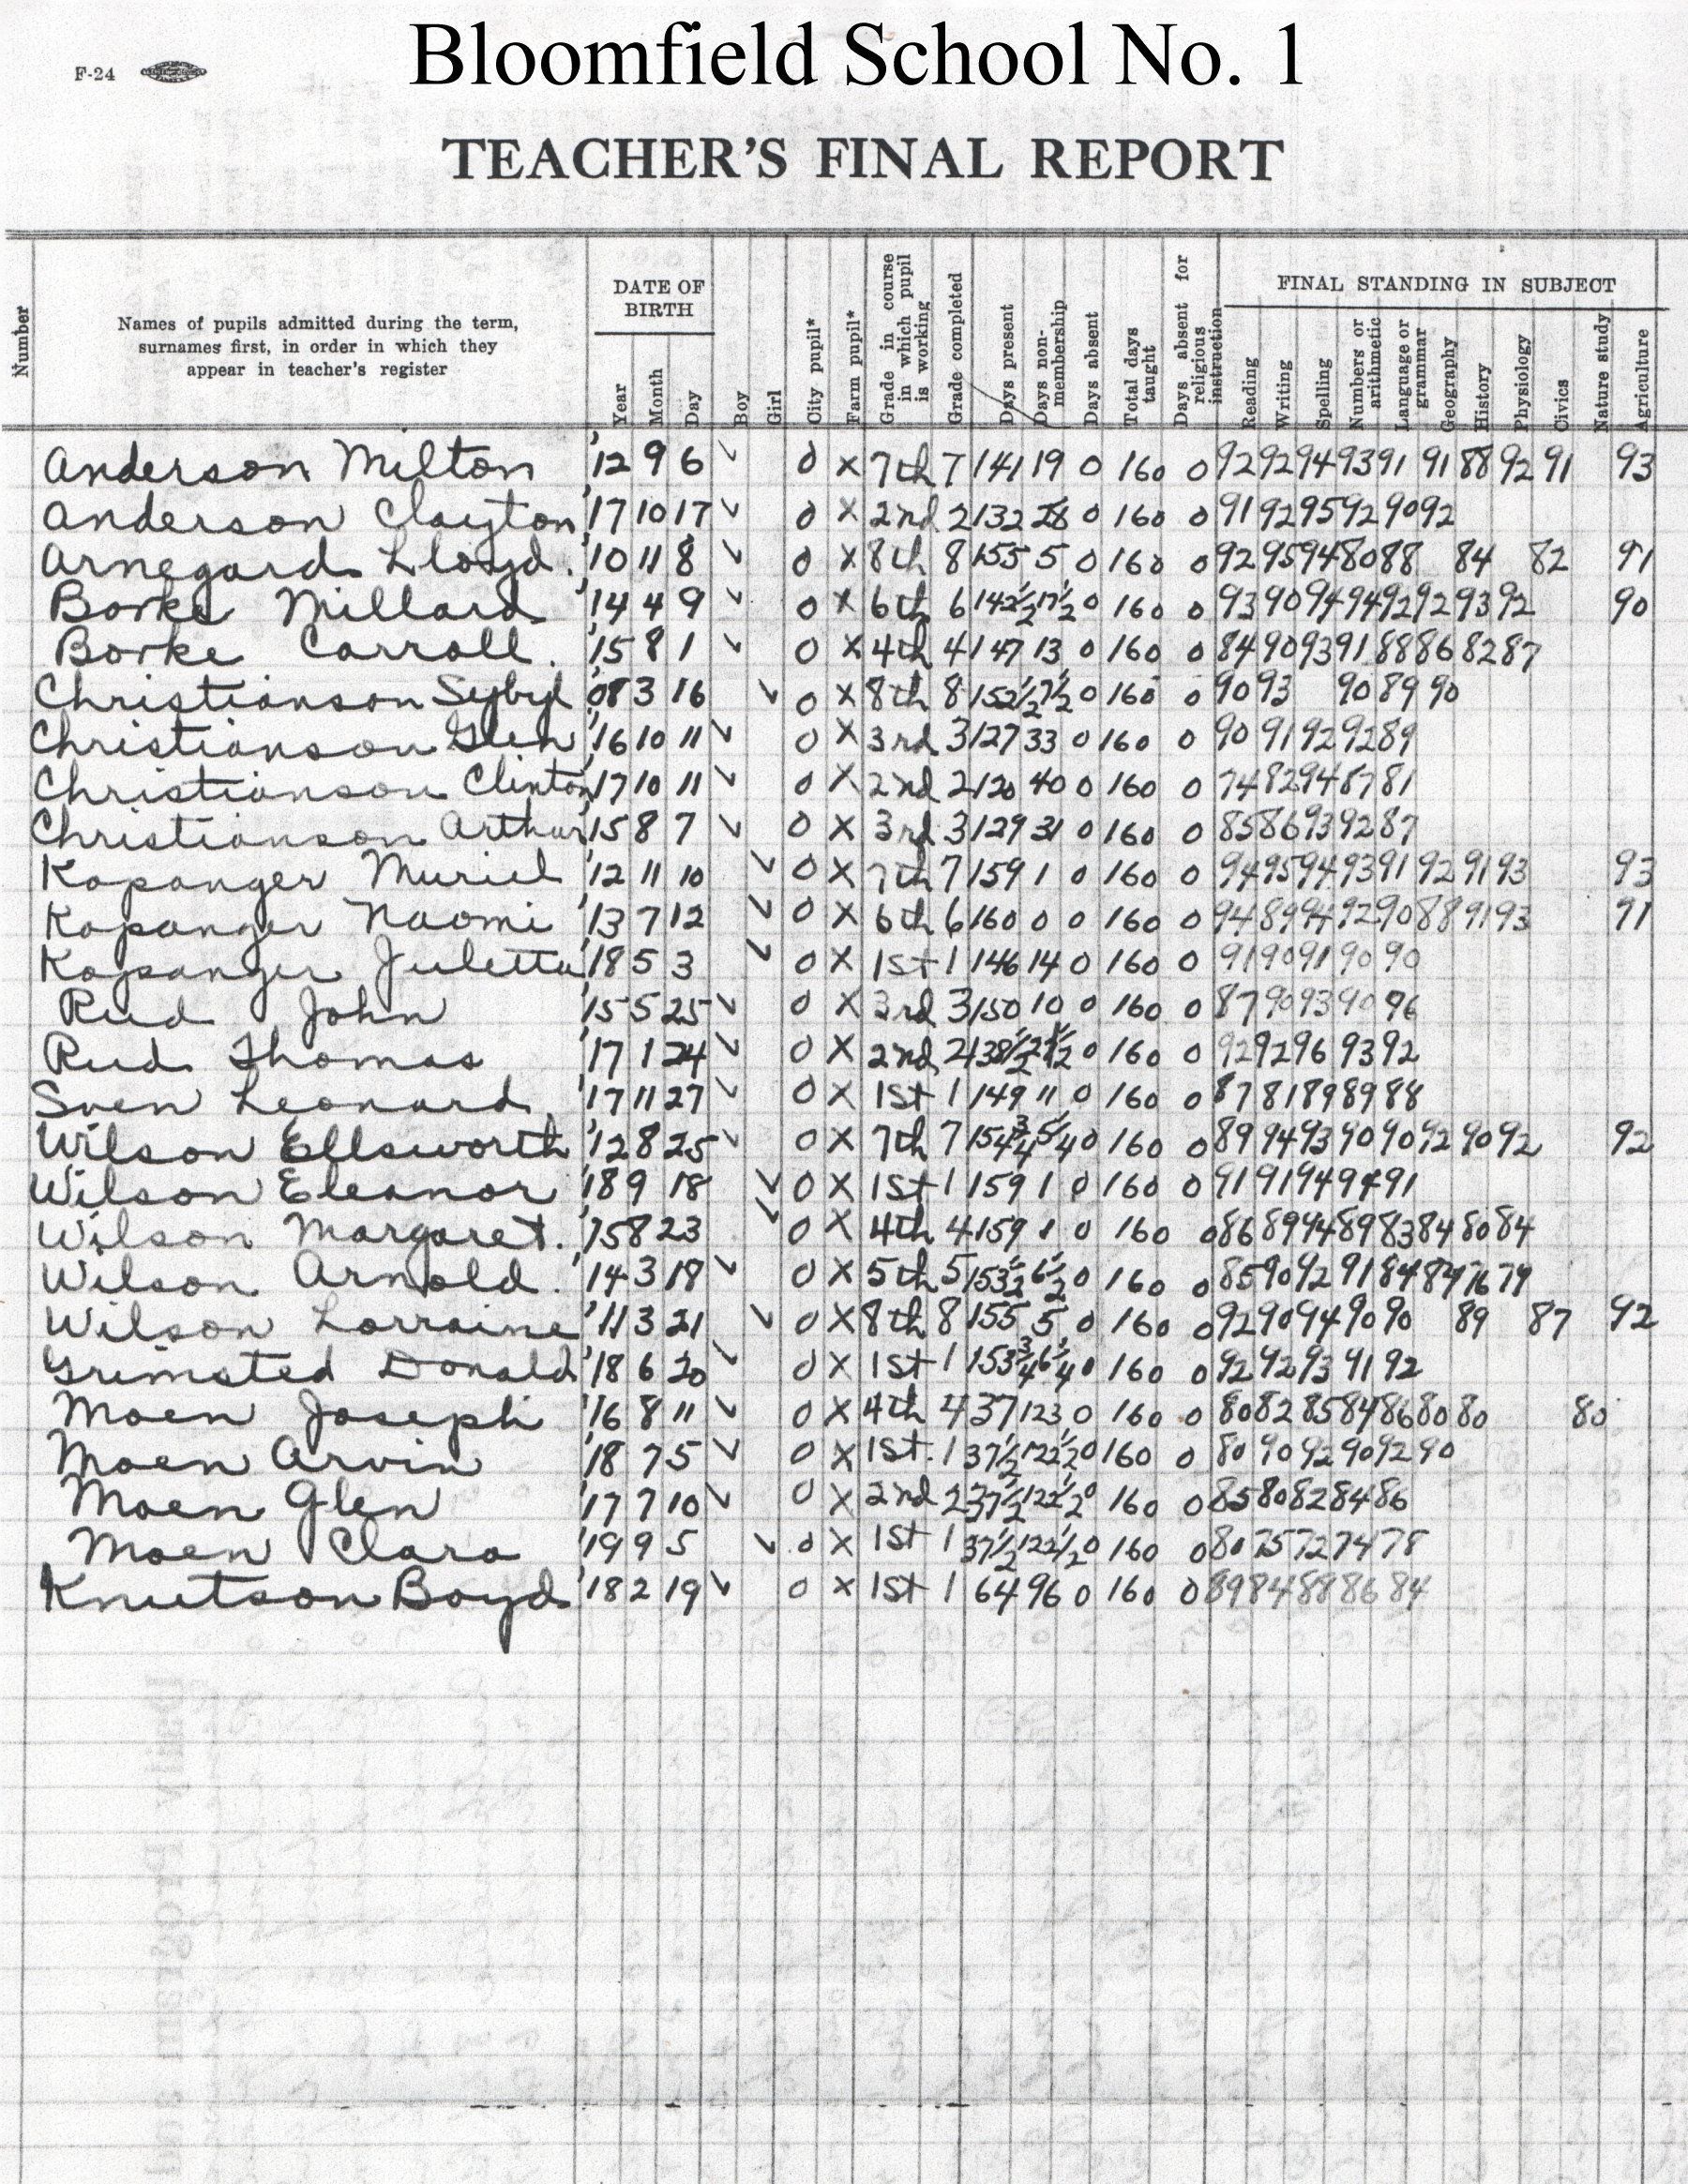 Bloomfield School No. 1
F-24
TEACHER'S FINAL REPORT
Number
Names of pupils admitted during the term, surnames first, in order in which they appear in teacher's register
DATE OF BIRTH
Year Month Day Boy Girl City pupil* Farm pupil* Grade in course in which pupil is working Grade completed Days present Days non-membership Days absent Total days taught Days absent for religious instruction
FINAL STANDING IN SUBJECT
Reading Writing Spelling Numbers or arithmetic Language or grammar Geography History Physiology Civics Nature study Agriculture
Anderson Milton '12 9 6 ✓ 0 x 7th 7 141 19 0 160 0 92 92 94 93 91 91 88 92 91 93
Anderson Clayton '17 10 17 ✓ 0 x 2nd 2 132 28 0 160 0 91 92 95 92 90 92
Arnegard Lloyd. '10 11 8 ✓ 0 x 8th 8 155 5 0 160 0 92 95 94 80 88 84 82 91
Borke Millard '14 4 9 ✓ 0 x 6th 6 142½ 17½ 0 160 0 93 90 94 94 92 92 93 92 90
Borke Carroll. '15 8 1 ✓ 0 x 4th 4 147 13 0 160 0 84 90 93 91 88 86 82 87
Christianson Sybyl '08 3 16 ✓ 0 x 8th 8 152½ 7½ 0 160 0 90 93 90 89 90
Christianson Glen '16 10 11 ✓ 0 x 3rd 3 127 33 0 160 0 90 91 92 92 89
Christianson Clinton '17 10 11 ✓ 0 x 2nd 2 120 40 0 160 0 74 82 94 87 81
Christianson Arthur '15 8 7 ✓ 0 x 3rd 3 129 31 0 160 0 85 86 93 92 87
Kopanger Muriel '12 11 10 ✓ 0 x 7th 7 159 1 0 160 0 94 95 94 93 91 92 91 93 93
Kopanger Naomi '13 7 12 ✓ 0 x 6th 6 160 0 0 160 0 94 89 94 92 90 88 91 93 91
Kopanger Juletta '18 5 3 ✓ 0 x 1st 1 146 14 0 160 0 91 90 91 90 90
Rud John '15 5 25 ✓ 0 x 3rd 3 150 10 0 160 0 87 90 93 90 96
Rud Thomas '17 1 24 ✓ 0 x 2nd 2 138½ 21½ 0 160 0 92 92 96 93 92
Sven Leonard '17 11 27 ✓ 0 x 1st 1 149 11 0 160 0 87 81 89 89 88
Wilson Ellsworth '12 8 25 ✓ 0 x 7th 7 154¾ 5¼ 0 160 0 89 94 93 90 90 92 90 92 92
Wilson Eleanor '18 9 18 ✓ 0 x 1st 1 159 1 0 160 0 91 91 94 94 91
Wilson Margaret. '15 8 23 ✓ 0 x 4th 4 159 1 0 160 0 86 89 94 89 83 84 80 84
Wilson Arnold. '14 3 18 ✓ 0 x 5th 5 153½ 6½ 0 160 0 85 90 92 91 84 84 76 79
Wilson Lorraine '11 3 21 ✓ 0 x 8th 8 155 5 0 160 0 92 90 94 90 90 89 87 92
Grimsted Donald '18 6 20 ✓ 0 x 1st 1 153¾ 6¼ 0 160 0 92 92 93 91 92
Moen Joseph '16 8 11 ✓ 0 x 4th 4 37 123 0 160 0 80 82 85 84 86 80 80 80
Moen Arvin '18 7 5 ✓ 0 x 1st. 1 37½ 122½ 0 160 0 80 90 92 90 92 90
Moen Glen '17 7 10 ✓ 0 x 2nd 2 37½ 122½ 0 160 0 85 80 82 84 86
Moen Clara '19 9 5 ✓ 0 x 1st 1 37½ 122½ 0 160 0 80 75 72 74 78
Knutson Boyd '18 2 19 ✓ 0 x 1st 1 64 96 0 160 0 89 84 88 86 84